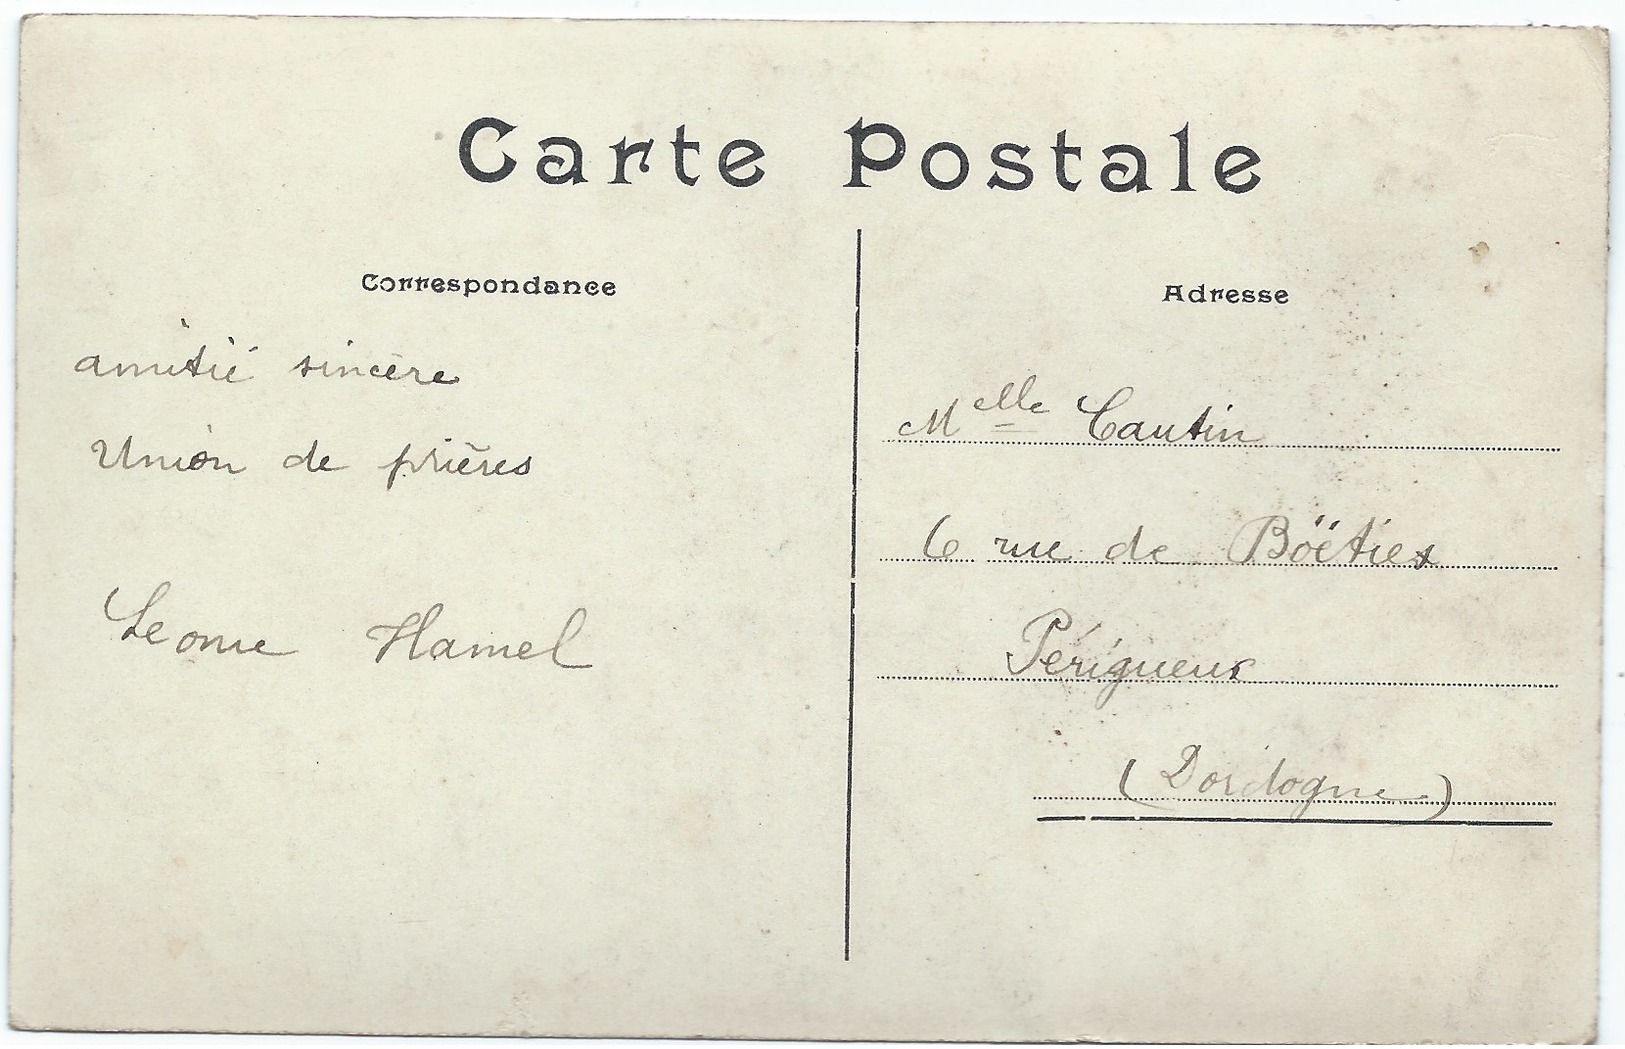 Carte Postale
Correspondance
amitié sincère
Union de prières
Leonie Hamel
Adresse
Melle Cautin
6 rue de Böëties
Périgueux
(Dordogne)